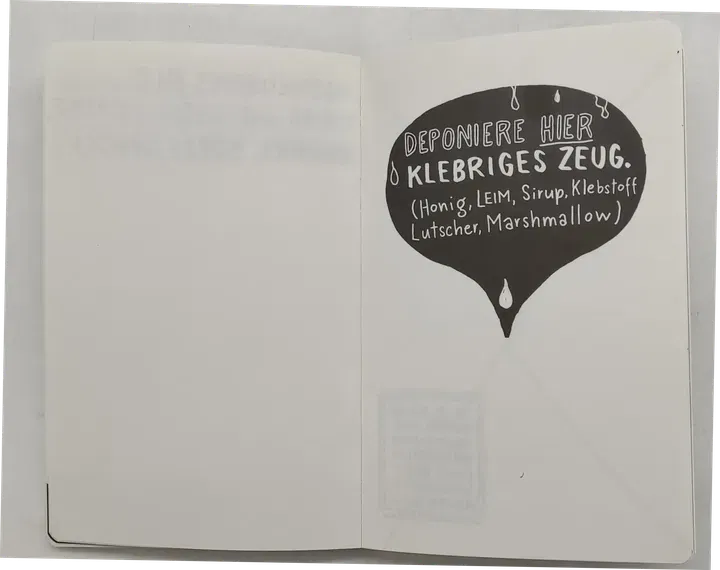 DEPONIERE HIER
KLEBRIGES ZEUG.
(Honig, LEIM, Sirup, Klebstoff
Lutscher, Marshmallow)